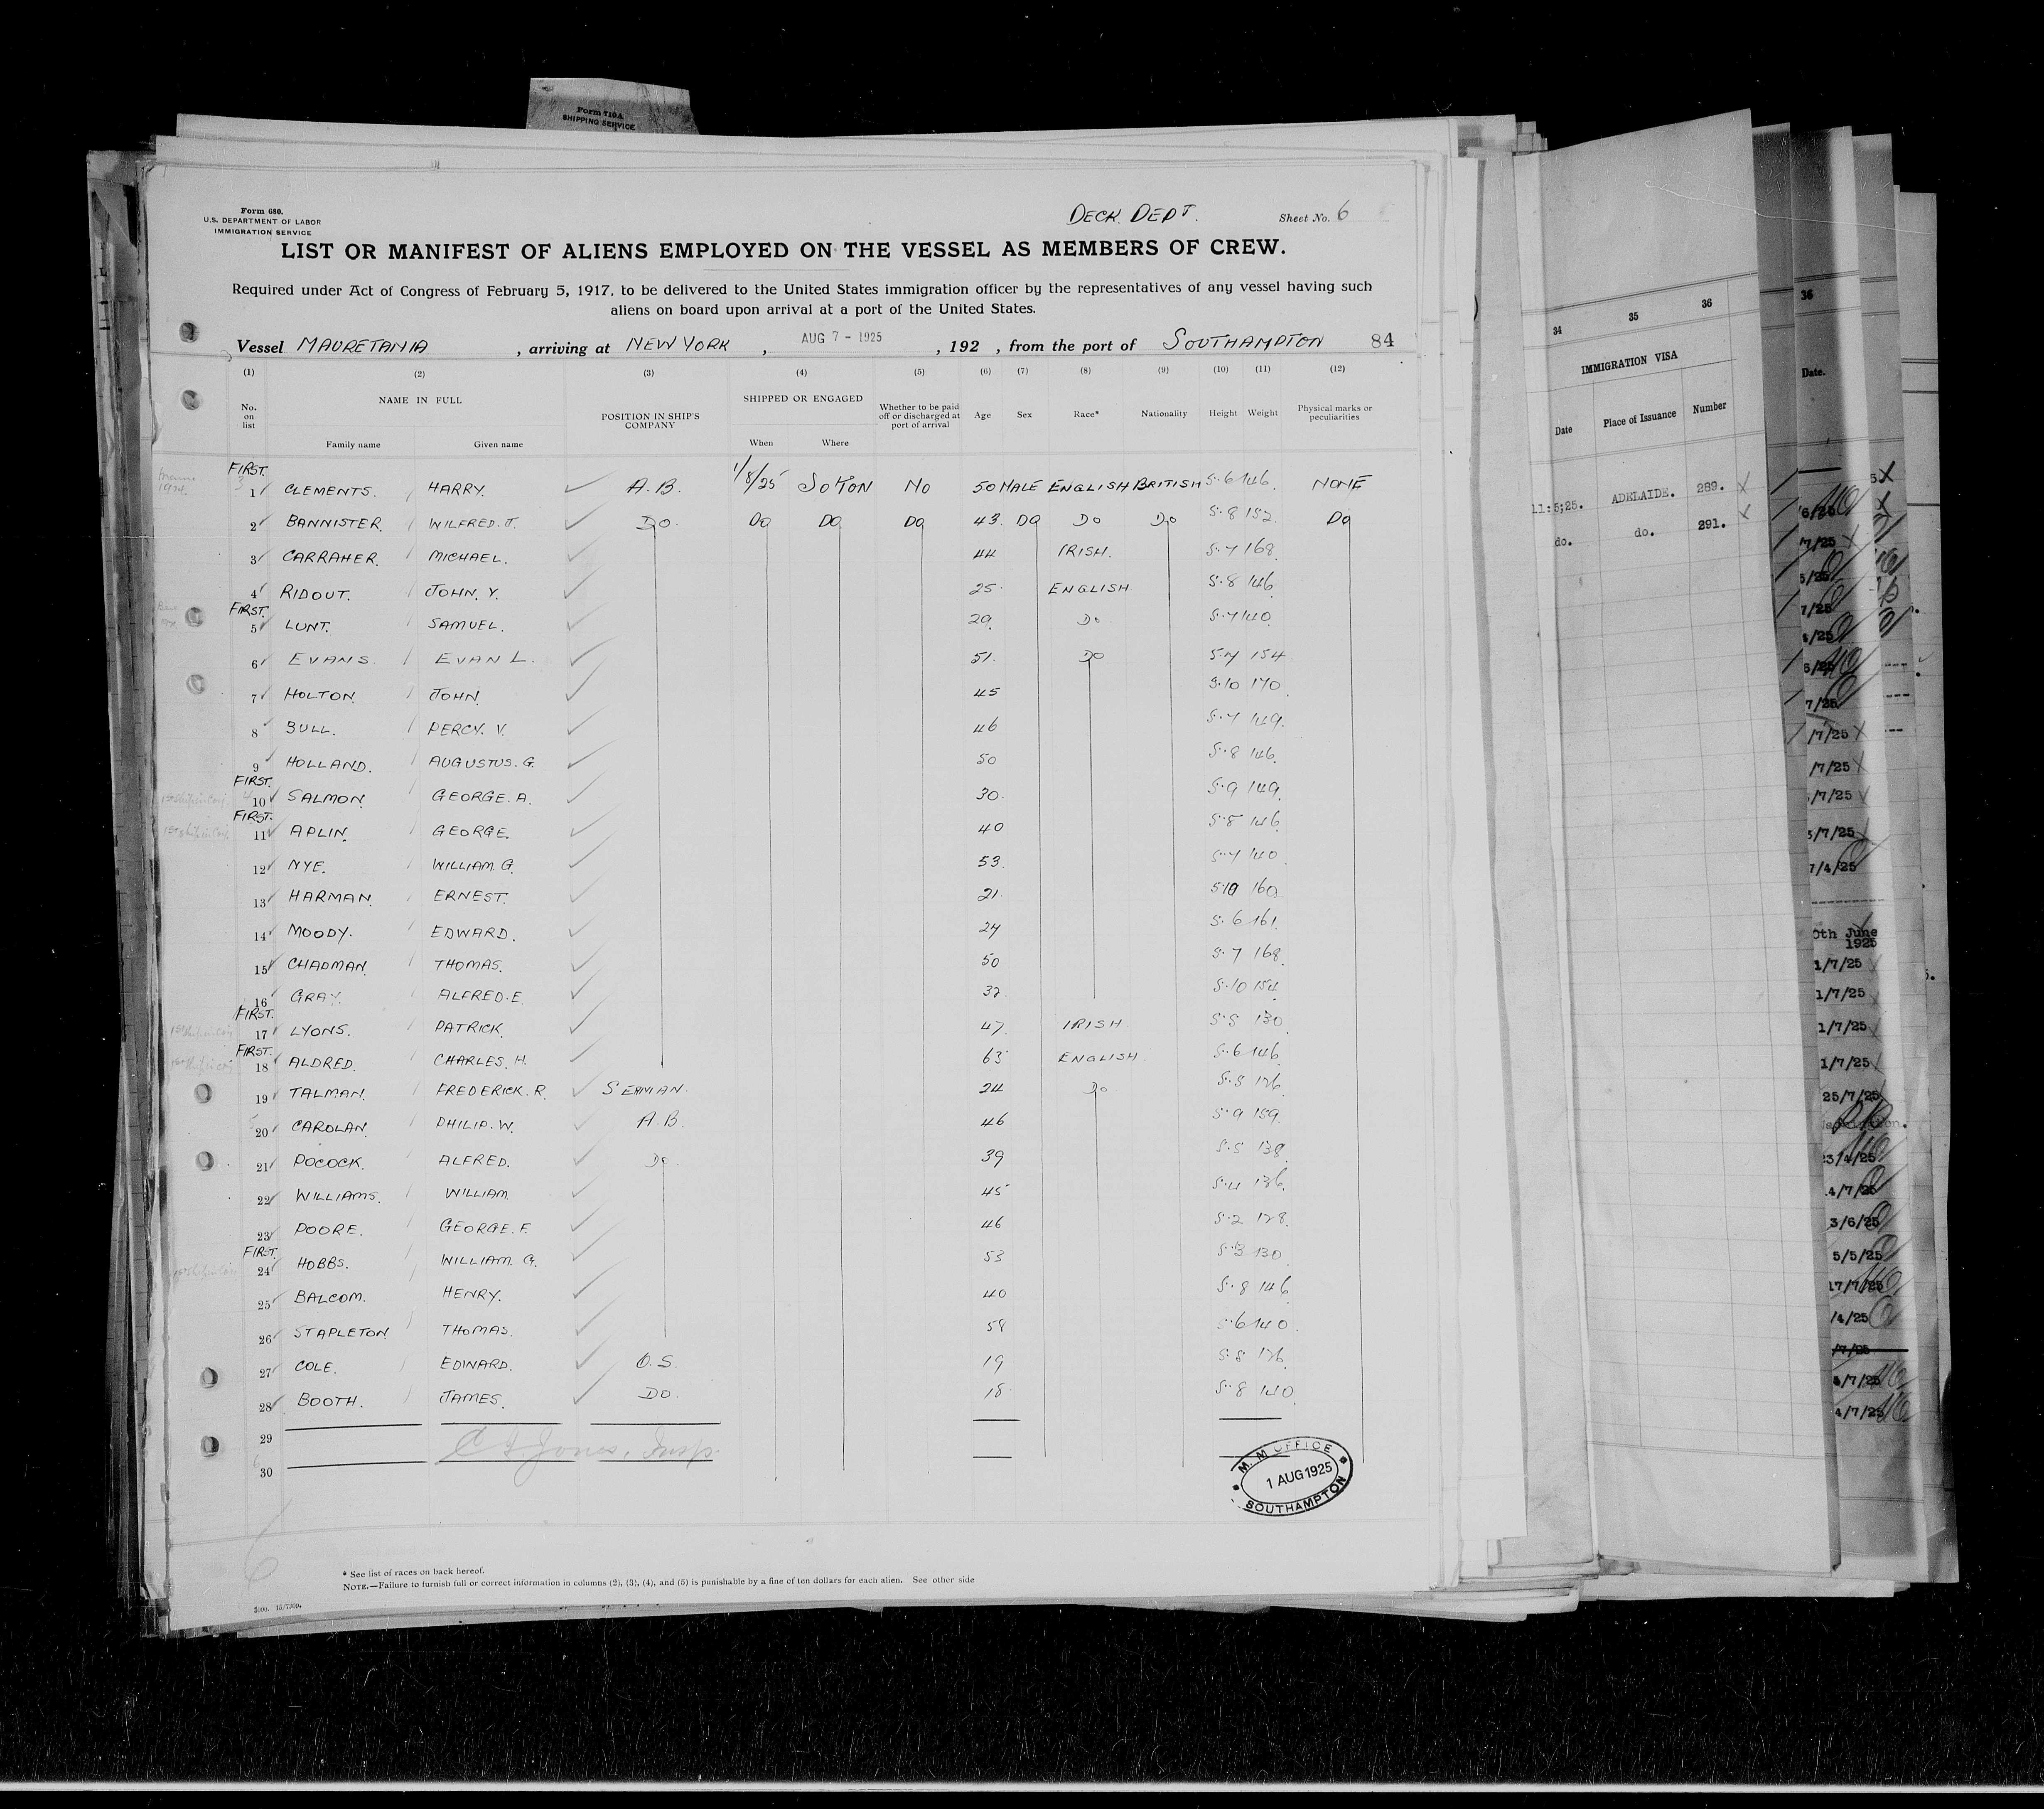 Form 710A
SHIPPING SERVICE
Form 680.
U.S. DEPARTMENT OF LABOR
IMMIGRATION SERVICE
DECK DEPT. Sheet No. 6
LIST OR MANIFEST OF ALIENS EMPLOYED ON THE VESSEL AS MEMBERS OF CREW.
Required under Act of Congress of February 5, 1917, to be delivered to the United States immigration officer by the representatives of any vessel having such
aliens on board upon arrival at a port of the United States.
Vessel MAURETANIA, arriving at NEW YORK, AUG 7 - 1925, 192 , from the port of SOUTHAMPTON 84
(1) (2) (3) (4) (5) (6) (7) (8) (9) (10) (11) (12)
No. on list NAME IN FULL Family name Given name POSITION IN SHIP'S COMPANY SHIPPED OR ENGAGED When Where Whether to be paid off or discharged at port of arrival Age Sex Race* Nationality Height Weight Physical marks or peculiarities
FIRST.
1 CLEMENTS. HARRY. A.B. 1/8/25 SOTON NO 50 MALE ENGLISH BRITISH 5.6 146 NONE
2 BANNISTER. WILFRED.J. DO. DO DO DO 43. DO DO DO 5.8 152 DO
3 CARRAHER. MICHAEL. 44 IRISH. 5.7 168
4 RIDOUT. JOHN. Y. 25. ENGLISH 5.8 146
FIRST.
5 LUNT. SAMUEL. 29. DO 5.7 140
6 EVANS. EVAN L. 51. DO 5.7 154
7 HOLTON. JOHN. 45 5.10 170
8 BULL. PERCY. V. 46 5.7 149
9 HOLLAND. AUGUSTUS. G. 50 5.8 146
FIRST.
10 SALMON. GEORGE. A. 30. 5.9 149
FIRST.
11 APLIN. GEORGE. 40 5.8 146
12 NYE. WILLIAM. G. 53. 5.7 140
13 HARMAN. ERNEST. 21. 5.10 160
14 MOODY. EDWARD. 24 5.6 161
15 CHAPMAN. THOMAS. 50 5.7 168
16 GRAY. ALFRED.E. 32. 5.10 154
FIRST.
17 LYONS. PATRICK. 47. IRISH 5.5 130
FIRST.
18 ALDRED. CHARLES. H. 63 ENGLISH. 5.6 146
19 TALMAN. FREDERICK. R. SEAMAN. 24 DO 5.5 126
20 CAROLAN. PHILIP. W. A.B. 46 5.9 159
21 POCOCK. ALFRED. DO. 39 5.5 138
22 WILLIAMS. WILLIAM. 45 5.4 136
23 POORE. GEORGE. F. 46 5.2 128
FIRST.
24 HOBBS. WILLIAM. G. 53 5.3 130
25 BALCOM. HENRY. 40 5.8 146
26 STAPLETON THOMAS. 58 5.6 140
27 COLE. EDWARD. O.S. 19 5.8 126
28 BOOTH. JAMES. DO. 18 5.8 140
29
30
Jones, Insp.
M. M OFFICE
1 AUG 1925
SOUTHAMPTON
6
* See list of races on back hereof.
NOTE.—Failure to furnish full or correct information in columns (2), (3), (4), and (5) is punishable by a fine of ten dollars for each alien. See other side
34 35 36
IMMIGRATION VISA
Date Place of Issuance Number
11:5;25. ADELAIDE. 289.
do. do. 291.
36
Date.